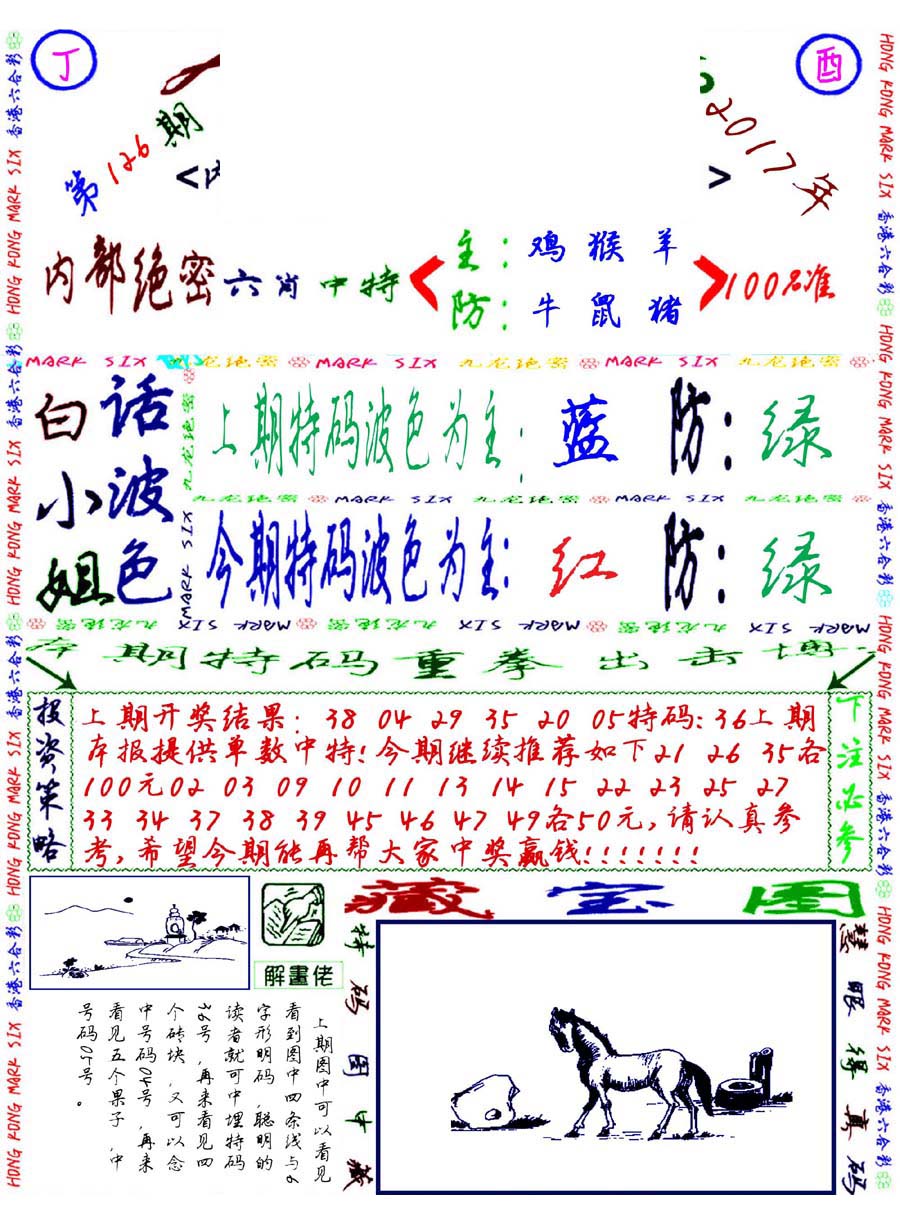 丁
酉
第126期
2017年
<
>
内部绝密六肖中特
主：鸡猴羊
防：牛鼠猪
100%准
MARK SIX 九龙绝密 MARK SIX 九龙绝密 MARK SIX 九龙绝密
白话
小波
姐色
上期特码波色为主：蓝 防：绿
九龙绝密 MARK SIX 九龙绝密 MARK SIX 九龙绝密
今期特码波色为主：红 防：绿
九龙绝密 MARK SIX 九龙绝密 MARK SIX 九龙绝密 MARK SIX
本期特码重拳出击博
投资策略
上期开奖结果：38 04 29 35 20 05特码：36上期
本报提供单数中特！今期继续推荐如下21 26 35各
100元02 03 09 10 11 13 14 15 22 23 25 27
33 34 37 38 39 45 46 47 49各50元，请认真参
考，希望今期能再帮大家中奖赢钱！！！！！！！
下注必参
藏宝图
解畫佬
上期图中可以看见
看到图中四条线与9
字形明码，聪明的
读者就可中埋特码
36号，再来看见四
个砖块，又可以念
中号码04号，再来
看见五个果子，中
号码05号。
特码图中藏
慧眼得真码
HONG KONG MARK SIX 香港六合彩 HONG KONG MARK SIX 香港六合彩 HONG KONG MARK SIX 香港六合彩 HONG KONG MARK SIX 香港六合彩
HONG KONG MARK SIX 香港六合彩 HONG KONG MARK SIX 香港六合彩 HONG KONG MARK SIX 香港六合彩 HONG KONG MARK SIX 香港六合彩